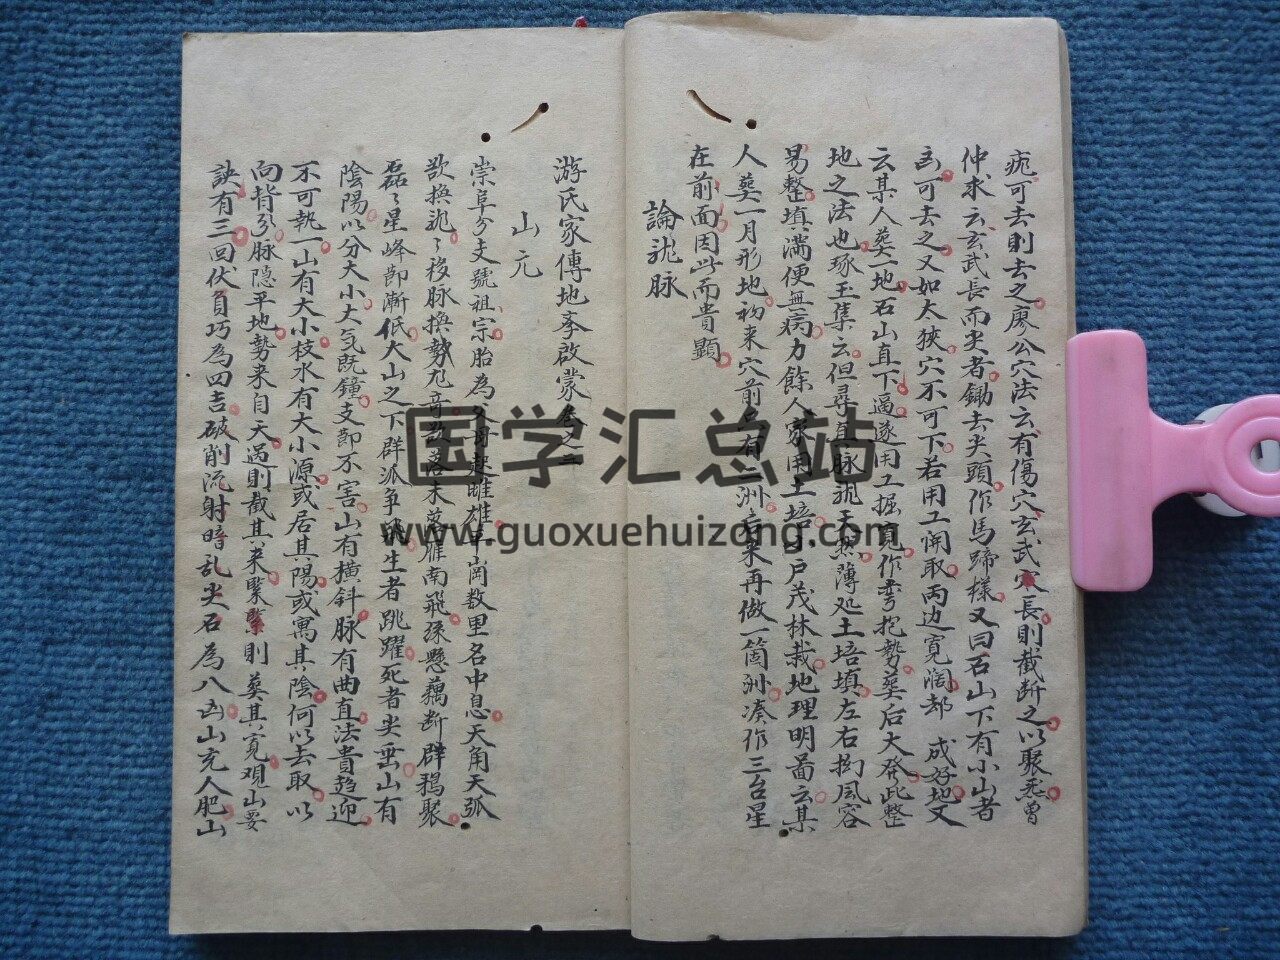 疵可去則去之廖公穴法云有傷穴玄武穴長則截斷之以聚炁曾
仲求云玄武長而尖者鋤去尖頭作馬蹄樣又曰石山下有小山者
凶可去之又如太狹穴不可下若用工開取兩边寬闊却 成好地又
云某人葬一地石山直下逼遂用工掘寬作弯抱勢葬后大發此整
地之法也琢玉集云但尋真脉龍天然薄处土培填左右拘風容
易整填满便無病力餘人家用土培戶茂林栽地理明啚云某
人葬一月形地初来穴前有二洲后来再做一箇洲凑作三台星
在前面因此而貴顯
論龍脉
游氏家傳地李啟蒙卷之二
山元
崇阜分支號祖宗胎為父母起雌雄平崗数里名中息天角天弧
欲换龍龍移脉换勢
落雁南飛 懸藕断辟鴉聚
磊磊星峰節漸低大山之下群派争 生者跳躍死者尖垂山有
陰陽以分大小大气既鐘支節不害山有横斜脉有曲直法貴趋迎
不可執一山有大小枝水有大小源或居其陽或寓其陰何以去取以
向背分脉隐平地勢来自天遇則截其来緊緊則葬其寬观山要
訣有三回伏負巧為四吉破削流射暗乱尖石為八凶山充人肥山
国学汇总站
www.guoxuehuizong.com